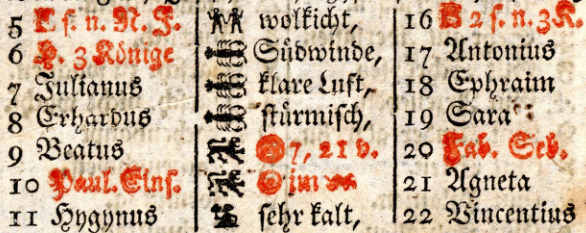 5 E s. n. N. J. wolkicht, 16 B 2 s. n. 3 K.
6 H. 3 Könige Südwinde, 17 Antonius
7 Julianus klare Luft, 18 Ephraim
8 Erhardus stürmisch, 19 Sara
9 Beatus 7, 21 v. 20 Fab. Seb.
10 Paul. Eins. im 21 Agneta
11 Hygynus sehr kalt, 22 Vincentius